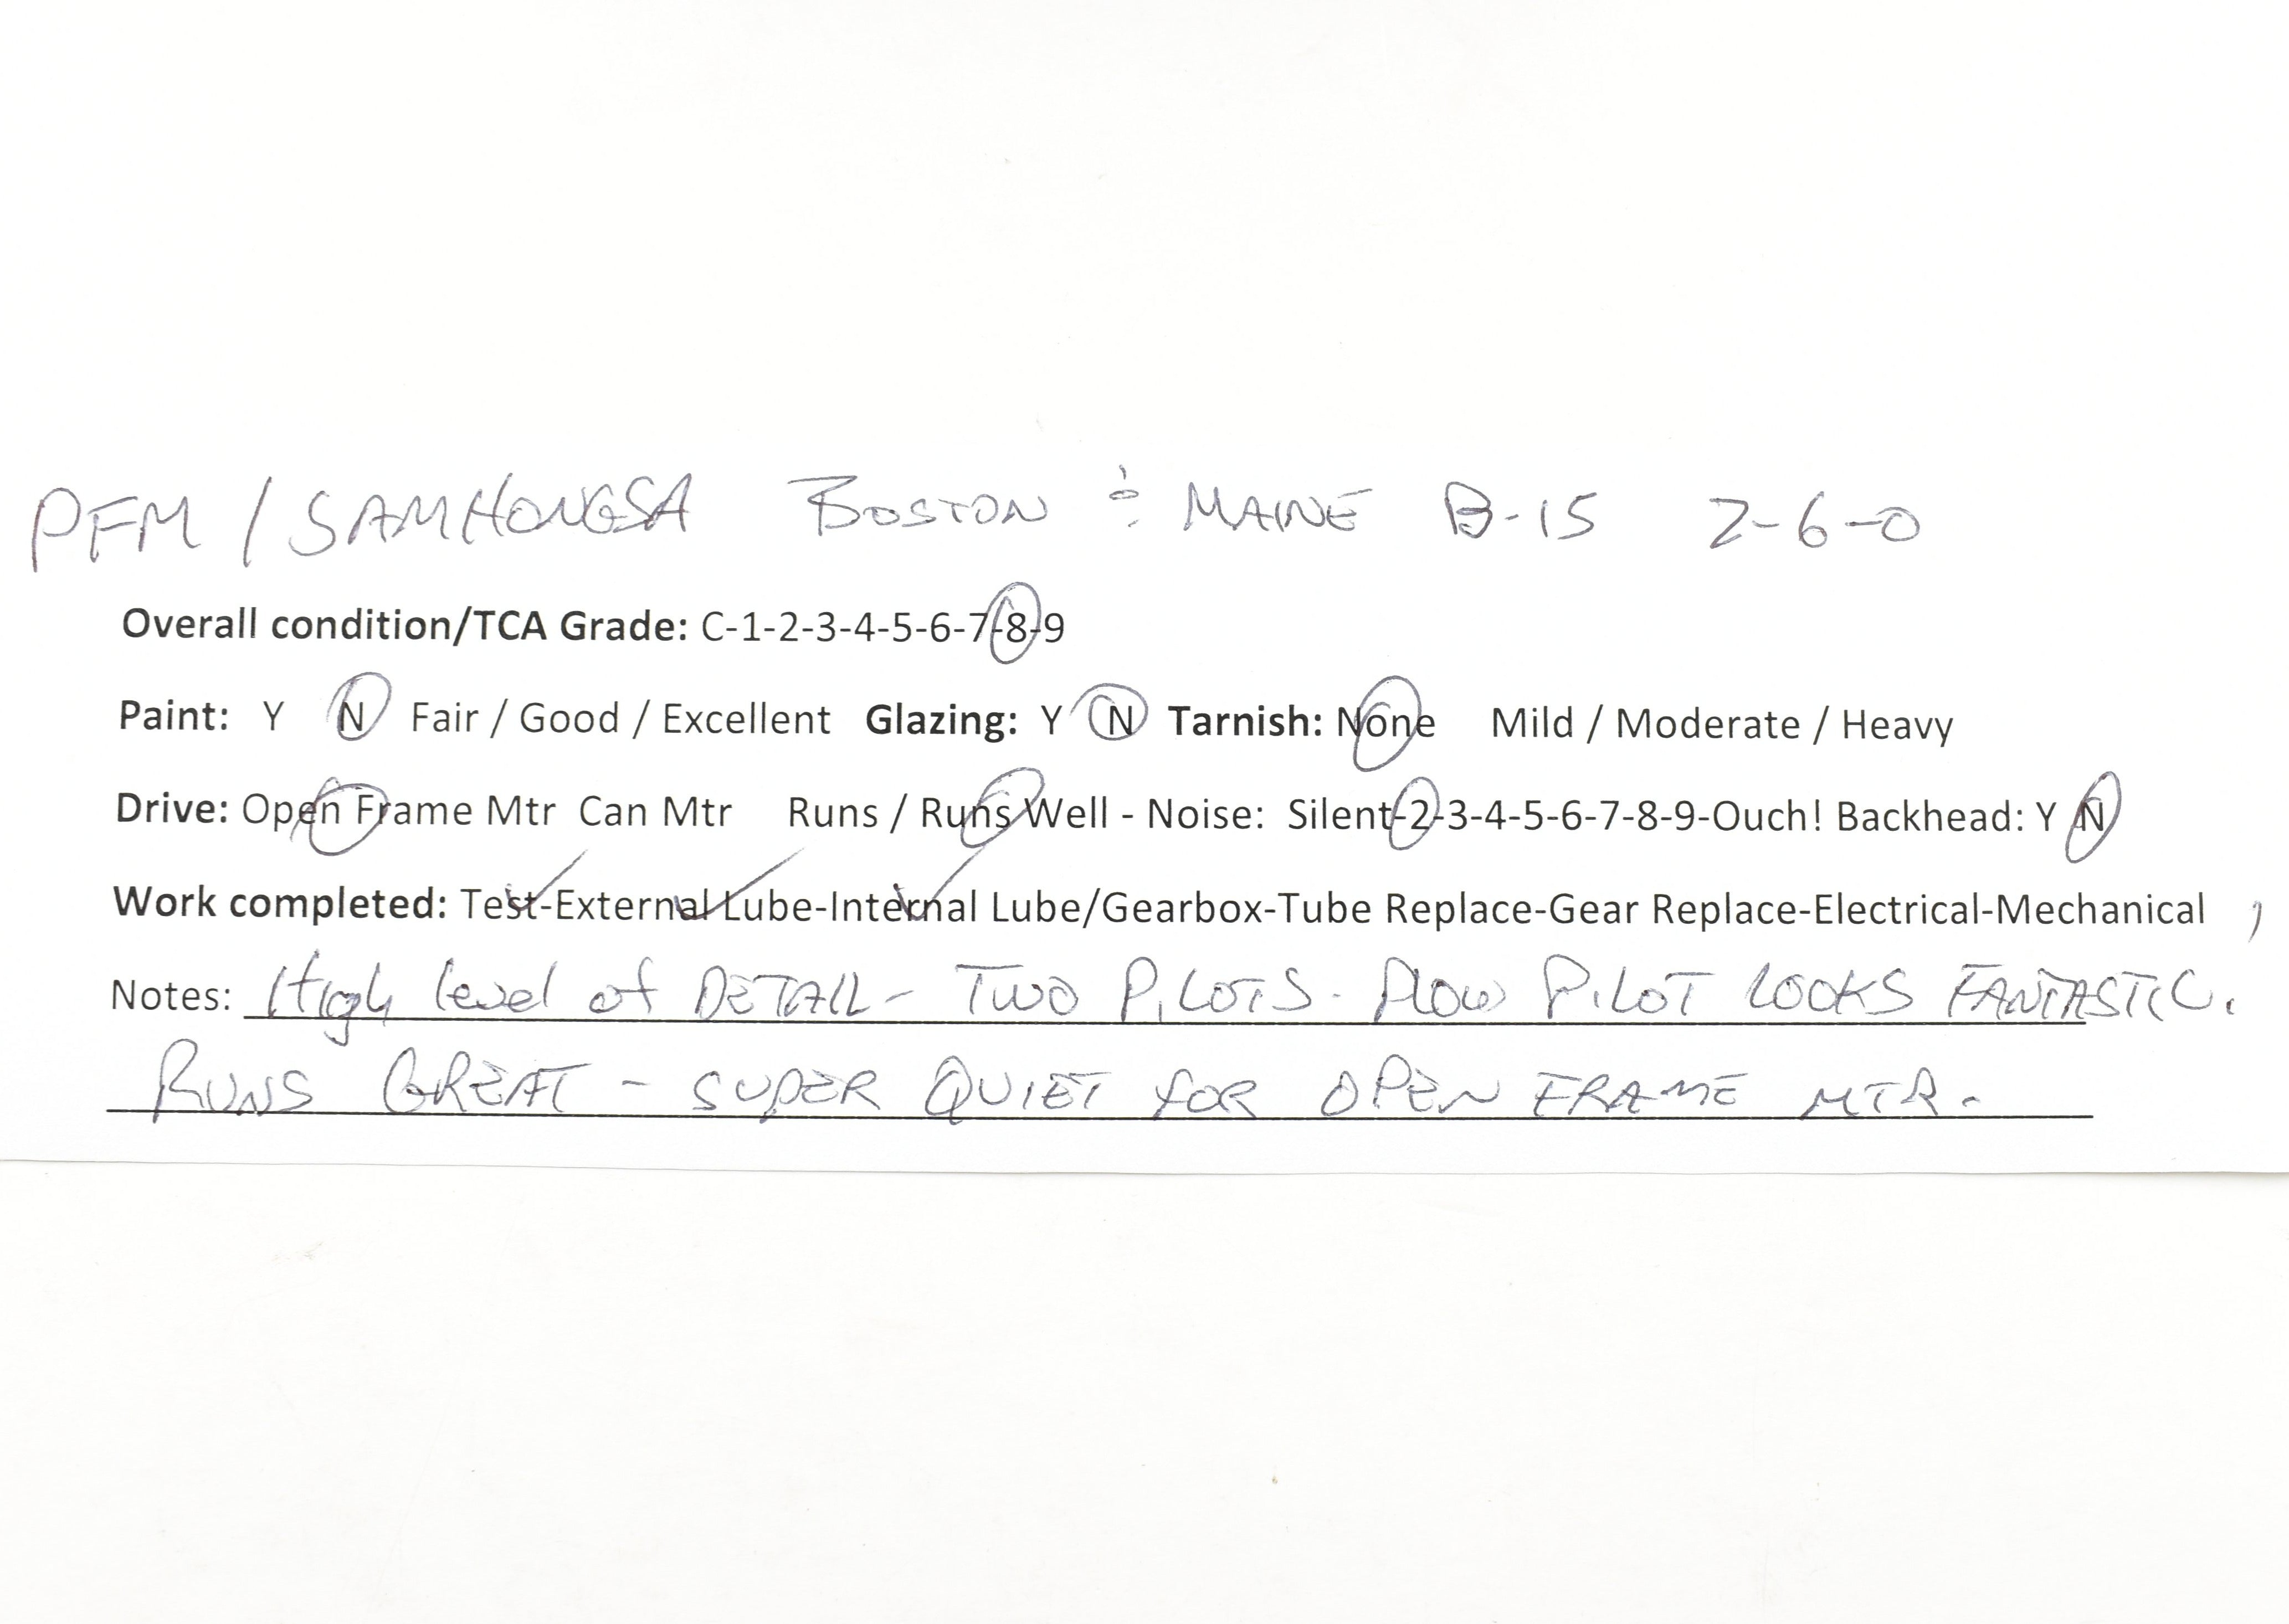 PFM / SAMHONGSA BOSTON & MAINE B-15 2-6-0
Overall condition/TCA Grade: C-1-2-3-4-5-6-7-8-9
Paint: Y N Fair / Good / Excellent Glazing: Y N Tarnish: None Mild / Moderate / Heavy
Drive: Open Frame Mtr Can Mtr Runs / Runs Well - Noise: Silent-2-3-4-5-6-7-8-9-Ouch! Backhead: Y N
Work completed: Test-External Lube-Internal Lube/Gearbox-Tube Replace-Gear Replace-Electrical-Mechanical
Notes: High level of DETAIL - TWO PILOTS. PLOW PILOT LOOKS FANTASTIC.
RUNS GREAT - SUPER QUIET FOR OPEN FRAME MTR.